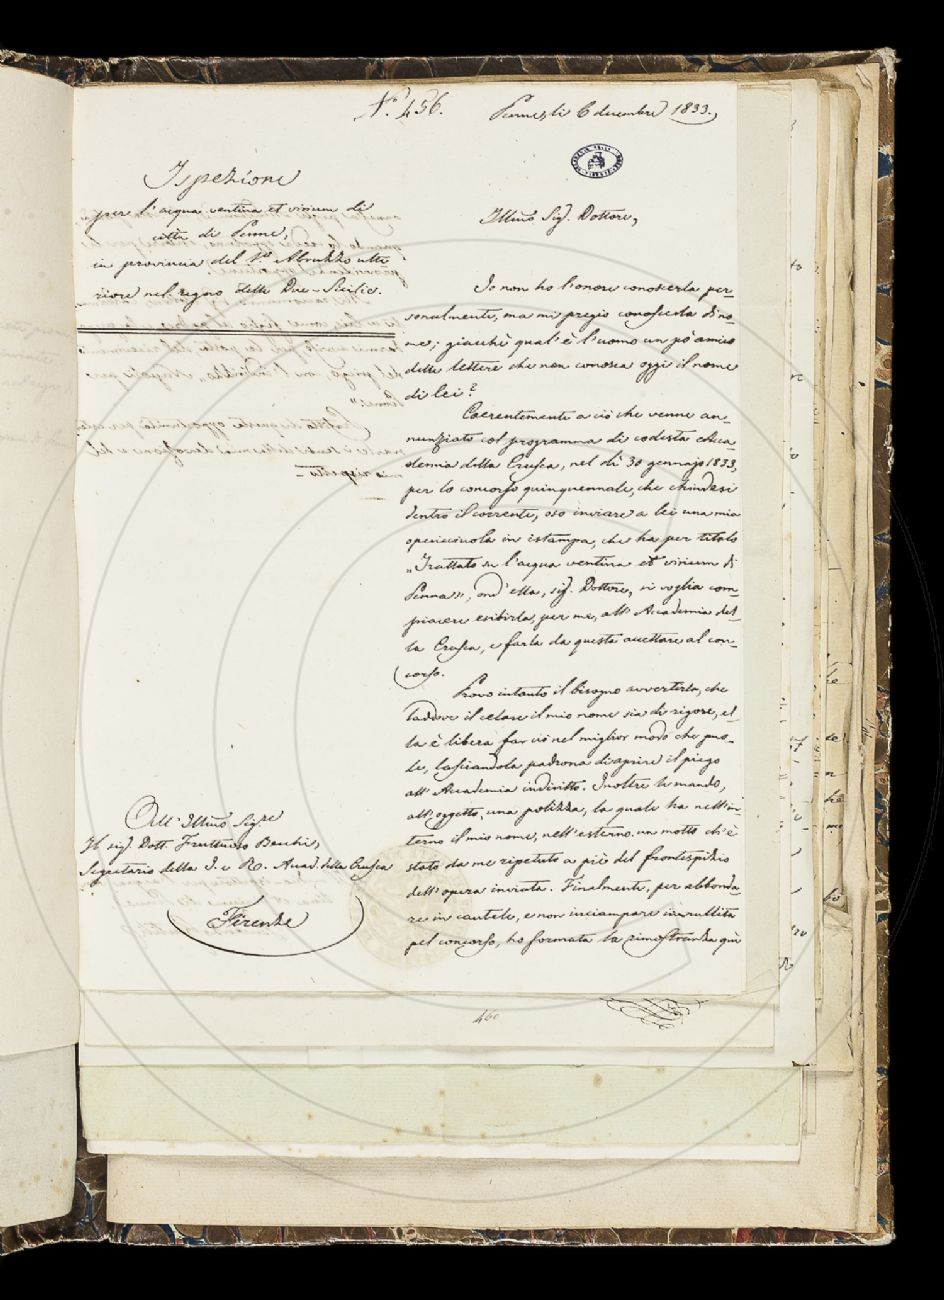 N.° 456.
Penne, li 6 decembre 1833.,
Ispezione
per l'acqua ventina et virium di
città di Penne,
in provincia del 1.mo Abruzzo ulte-
riore nel regno delle Due-Sicilie.
Illmo Sig.r Dottore,
Io non ho l'onore conoscerla per-
sonalmente, ma mi pregio conoscerla di no-
me; giacchè qual'è l'uomo un pò amico
delle lettere che non conosca oggi il nome
di lei?
Coerentemente a ciò che venne an-
nunziato col programma di codesta Acca-
demia della Crusca, nel dì 30 gennajo 1833,
per lo concorso quinquennale, che chiudesi
dentro il corrente, oso inviare a lei una mia
opericciuola in istampa, che ha per titolo
„Trattato su l'acqua ventina et virium di
Penna", ond'ella, sig. Dottore, si voglia com-
piacere esibirla, per me, all'Accademia del-
la Crusca, e farla da questa accettare al con-
corso.
Provo intanto il bisogno avvertirla, che
laddove il celare il mio nome sia di rigore, el-
la è libera far ciò nel miglior modo che puo-
le, lasciandola padrona di aprire il piego
all'Accademia indiritto. Inoltre le mando,
all'oggetto, una polizza, la quale ha nell'in-
terno il mio nome, nell'esterno un motto ch'è
stato da me ripetuto a piè del frontespizio
dell'opera inviata. Finalmente, per abbonda-
re in cautele, e non inciampare in nullità
pel concorso, ho formata la rimostranza quì
All'Illmo Sig.re
Il sig. Dott. Fruttuoso Becchi,
Segretario della I. e R. Accad. della Crusca
Firenze
460